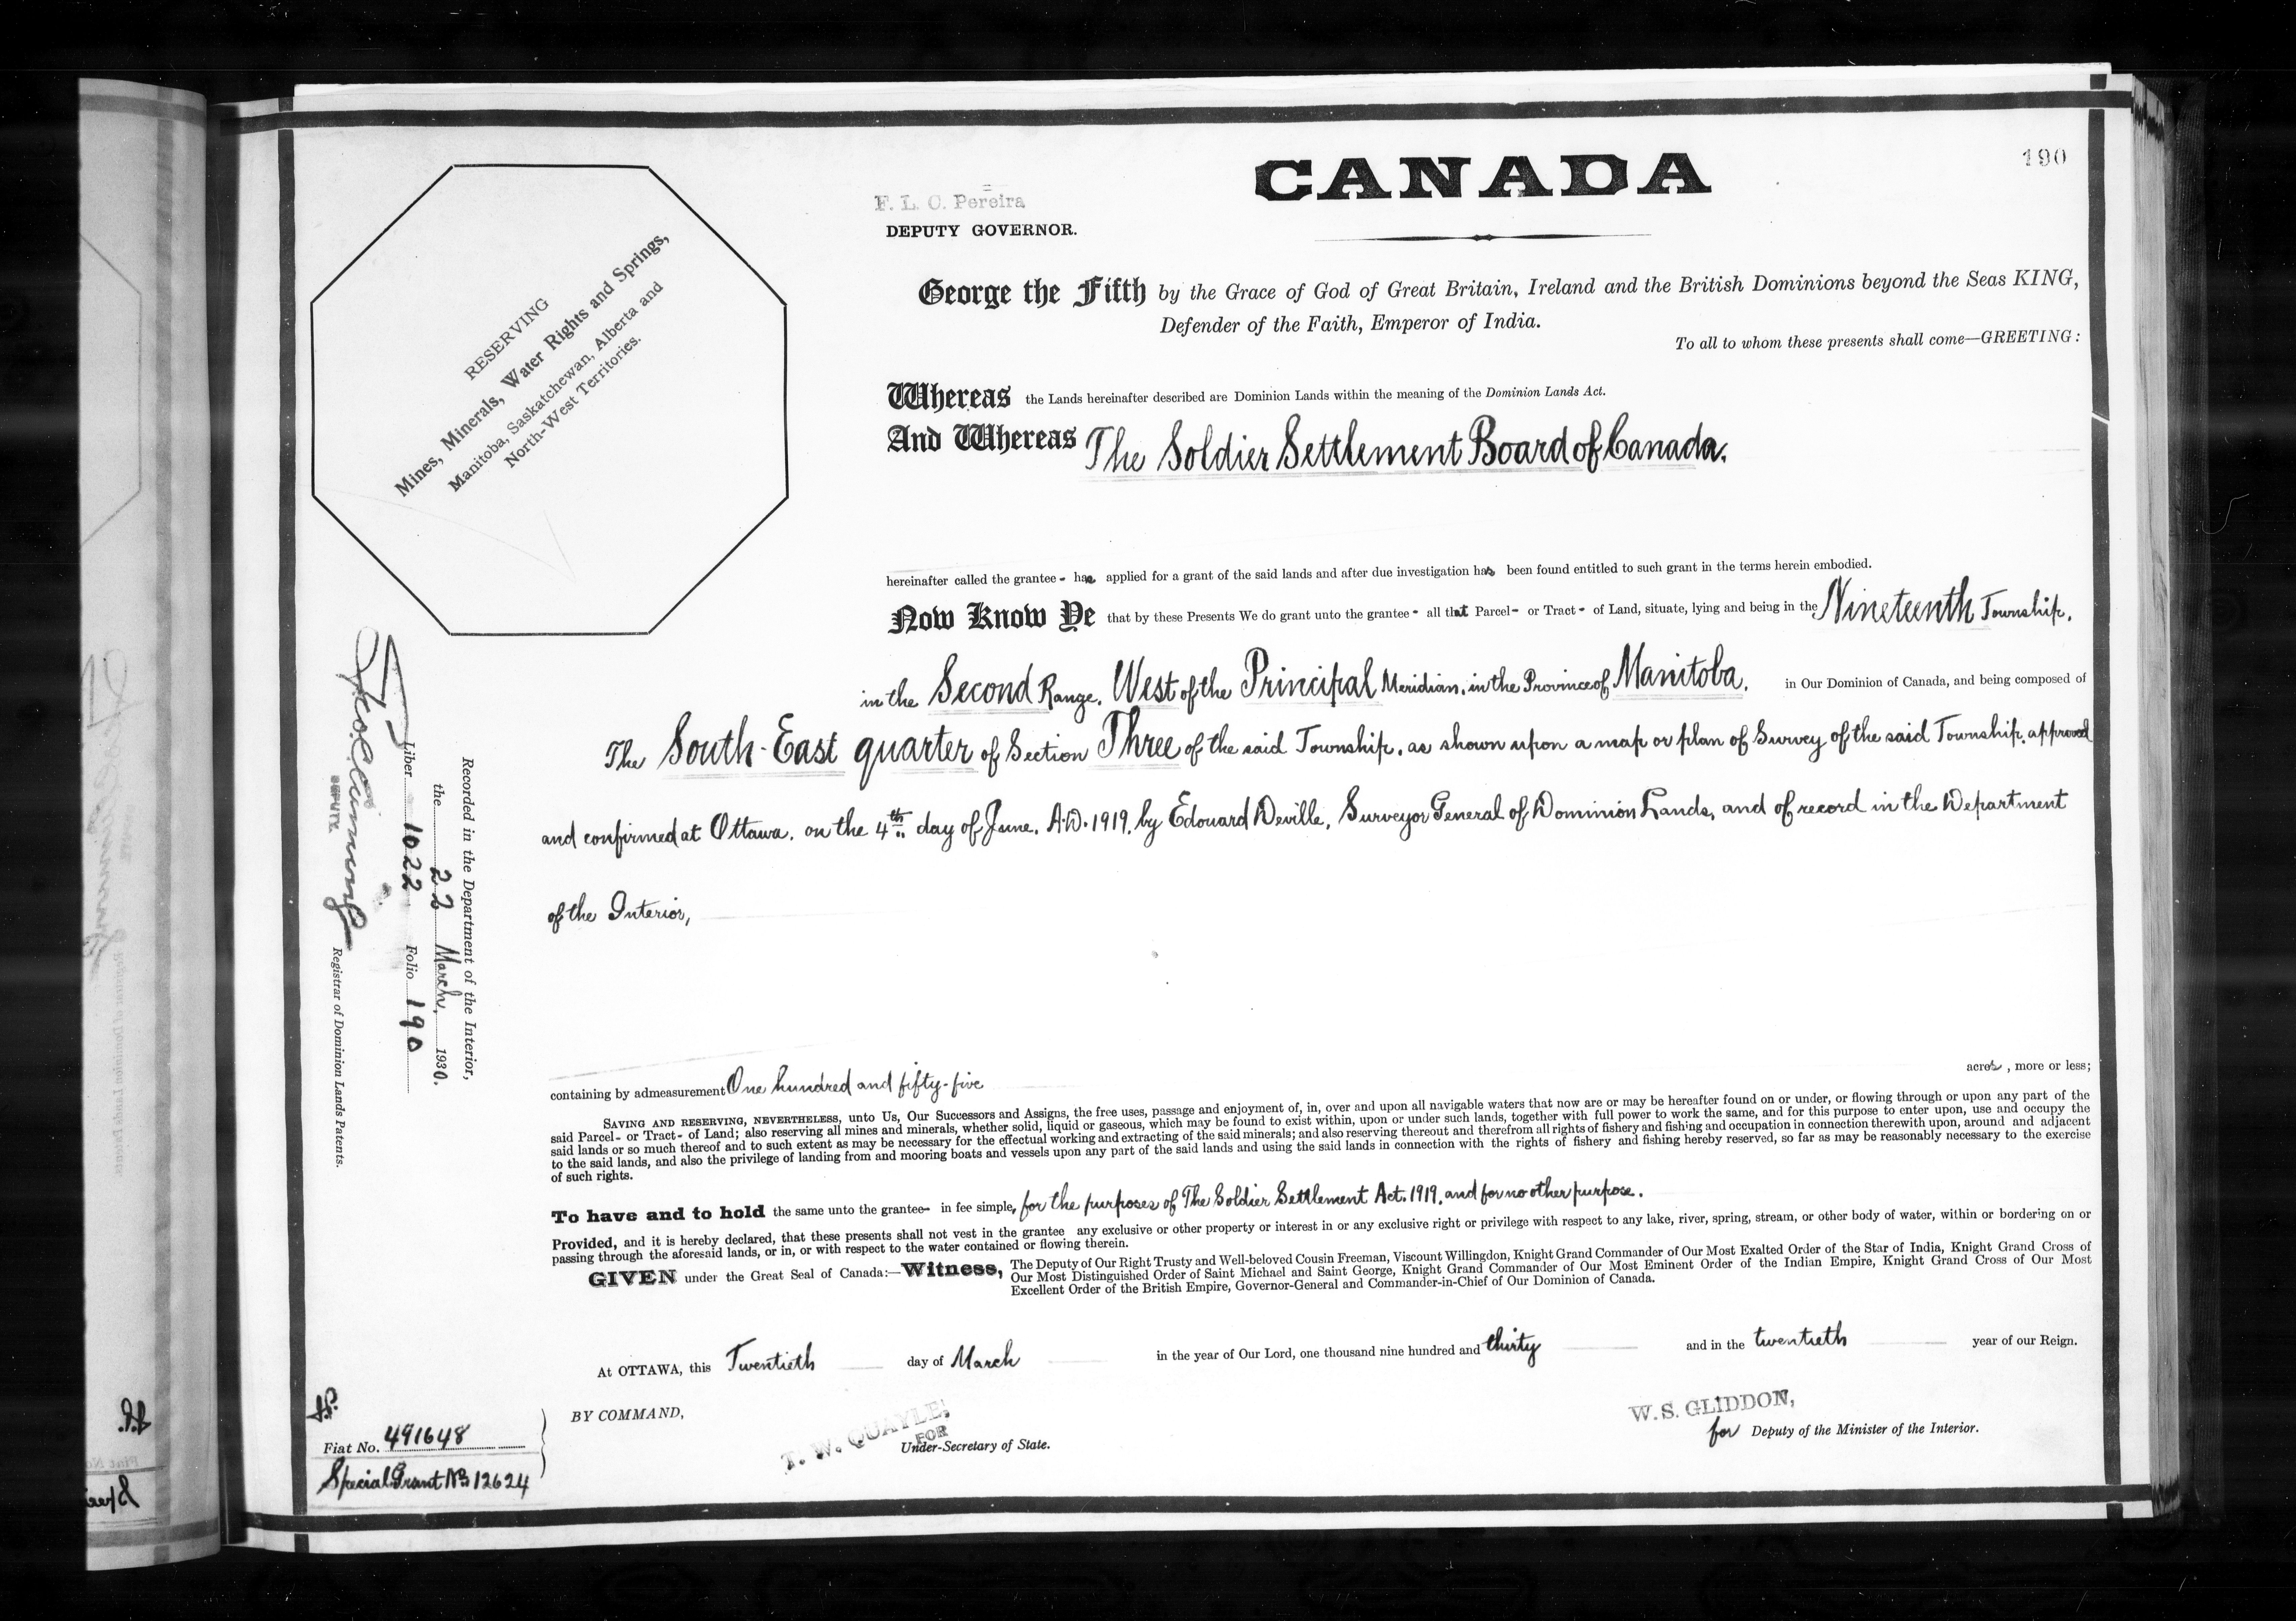 190
CANADA
F. L. C. Pereira
DEPUTY GOVERNOR.
RESERVING
Mines, Minerals, Water Rights and Springs,
Manitoba, Saskatchewan, Alberta and
North-West Territories.
George the Fifth by the Grace of God of Great Britain, Ireland and the British Dominions beyond the Seas KING,
Defender of the Faith, Emperor of India.
To all to whom these presents shall come—GREETING:
Whereas the Lands hereinafter described are Dominion Lands within the meaning of the Dominion Lands Act.
And Whereas The Soldier Settlement Board of Canada.
hereinafter called the grantee - has applied for a grant of the said lands and after due investigation has been found entitled to such grant in the terms herein embodied.
Now Know Ye that by these Presents We do grant unto the grantee - all that Parcel - or Tract - of Land, situate, lying and being in the Nineteenth Township,
in the Second Range, West of the Principal Meridian, in the Province of Manitoba, in Our Dominion of Canada, and being composed of
The South-East quarter of Section Three of the said Township, as shown upon a map or plan of Survey of the said Township, approved
and confirmed at Ottawa, on the 4th day of June, A.D. 1919, by Edouard Deville, Surveyor General of Dominion Lands, and of record in the Department
of the Interior,
Recorded in the Department of the Interior,
the 22 March, 1930.
Liber 1022 Folio 190
DEPUTY. Registrar of Dominion Lands Patents.
containing by admeasurement One hundred and fifty-five acres, more or less;
SAVING AND RESERVING, NEVERTHELESS, unto Us, Our Successors and Assigns, the free uses, passage and enjoyment of, in, over and upon all navigable waters that now are or may be hereafter found on or under, or flowing through or upon any part of the
said Parcel - or Tract - of Land; also reserving all mines and minerals, whether solid, liquid or gaseous, which may be found to exist within, upon or under such lands, together with full power to work the same, and for this purpose to enter upon, use and occupy the
said lands or so much thereof and to such extent as may be necessary for the effectual working and extracting of the said minerals; and also reserving thereout and therefrom all rights of fishery and fishing and occupation in connection therewith upon, around and adjacent
to the said lands, and also the privilege of landing from and mooring boats and vessels upon any part of the said lands and using the said lands in connection with the rights of fishery and fishing hereby reserved, so far as may be reasonably necessary to the exercise
of such rights.
To have and to hold the same unto the grantee - in fee simple, for the purposes of The Soldier Settlement Act, 1919, and for no other purpose.
Provided, and it is hereby declared, that these presents shall not vest in the grantee any exclusive or other property or interest in or any exclusive right or privilege with respect to any lake, river, spring, stream, or other body of water, within or bordering on or
passing through the aforesaid lands, or in, or with respect to the water contained or flowing therein.
GIVEN under the Great Seal of Canada:—Witness, The Deputy of Our Right Trusty and Well-beloved Cousin Freeman, Viscount Willingdon, Knight Grand Commander of Our Most Exalted Order of the Star of India, Knight Grand Cross of
Our Most Distinguished Order of Saint Michael and Saint George, Knight Grand Commander of Our Most Eminent Order of the Indian Empire, Knight Grand Cross of Our Most
Excellent Order of the British Empire, Governor-General and Commander-in-Chief of Our Dominion of Canada.
At OTTAWA, this Twentieth day of March in the year of Our Lord, one thousand nine hundred and thirty and in the twentieth year of our Reign.
BY COMMAND,
T. W. QUAYLE,
FOR
Under-Secretary of State.
W. S. GLIDDON,
for Deputy of the Minister of the Interior.
Fiat No. 491648
Special Grant No. 12624